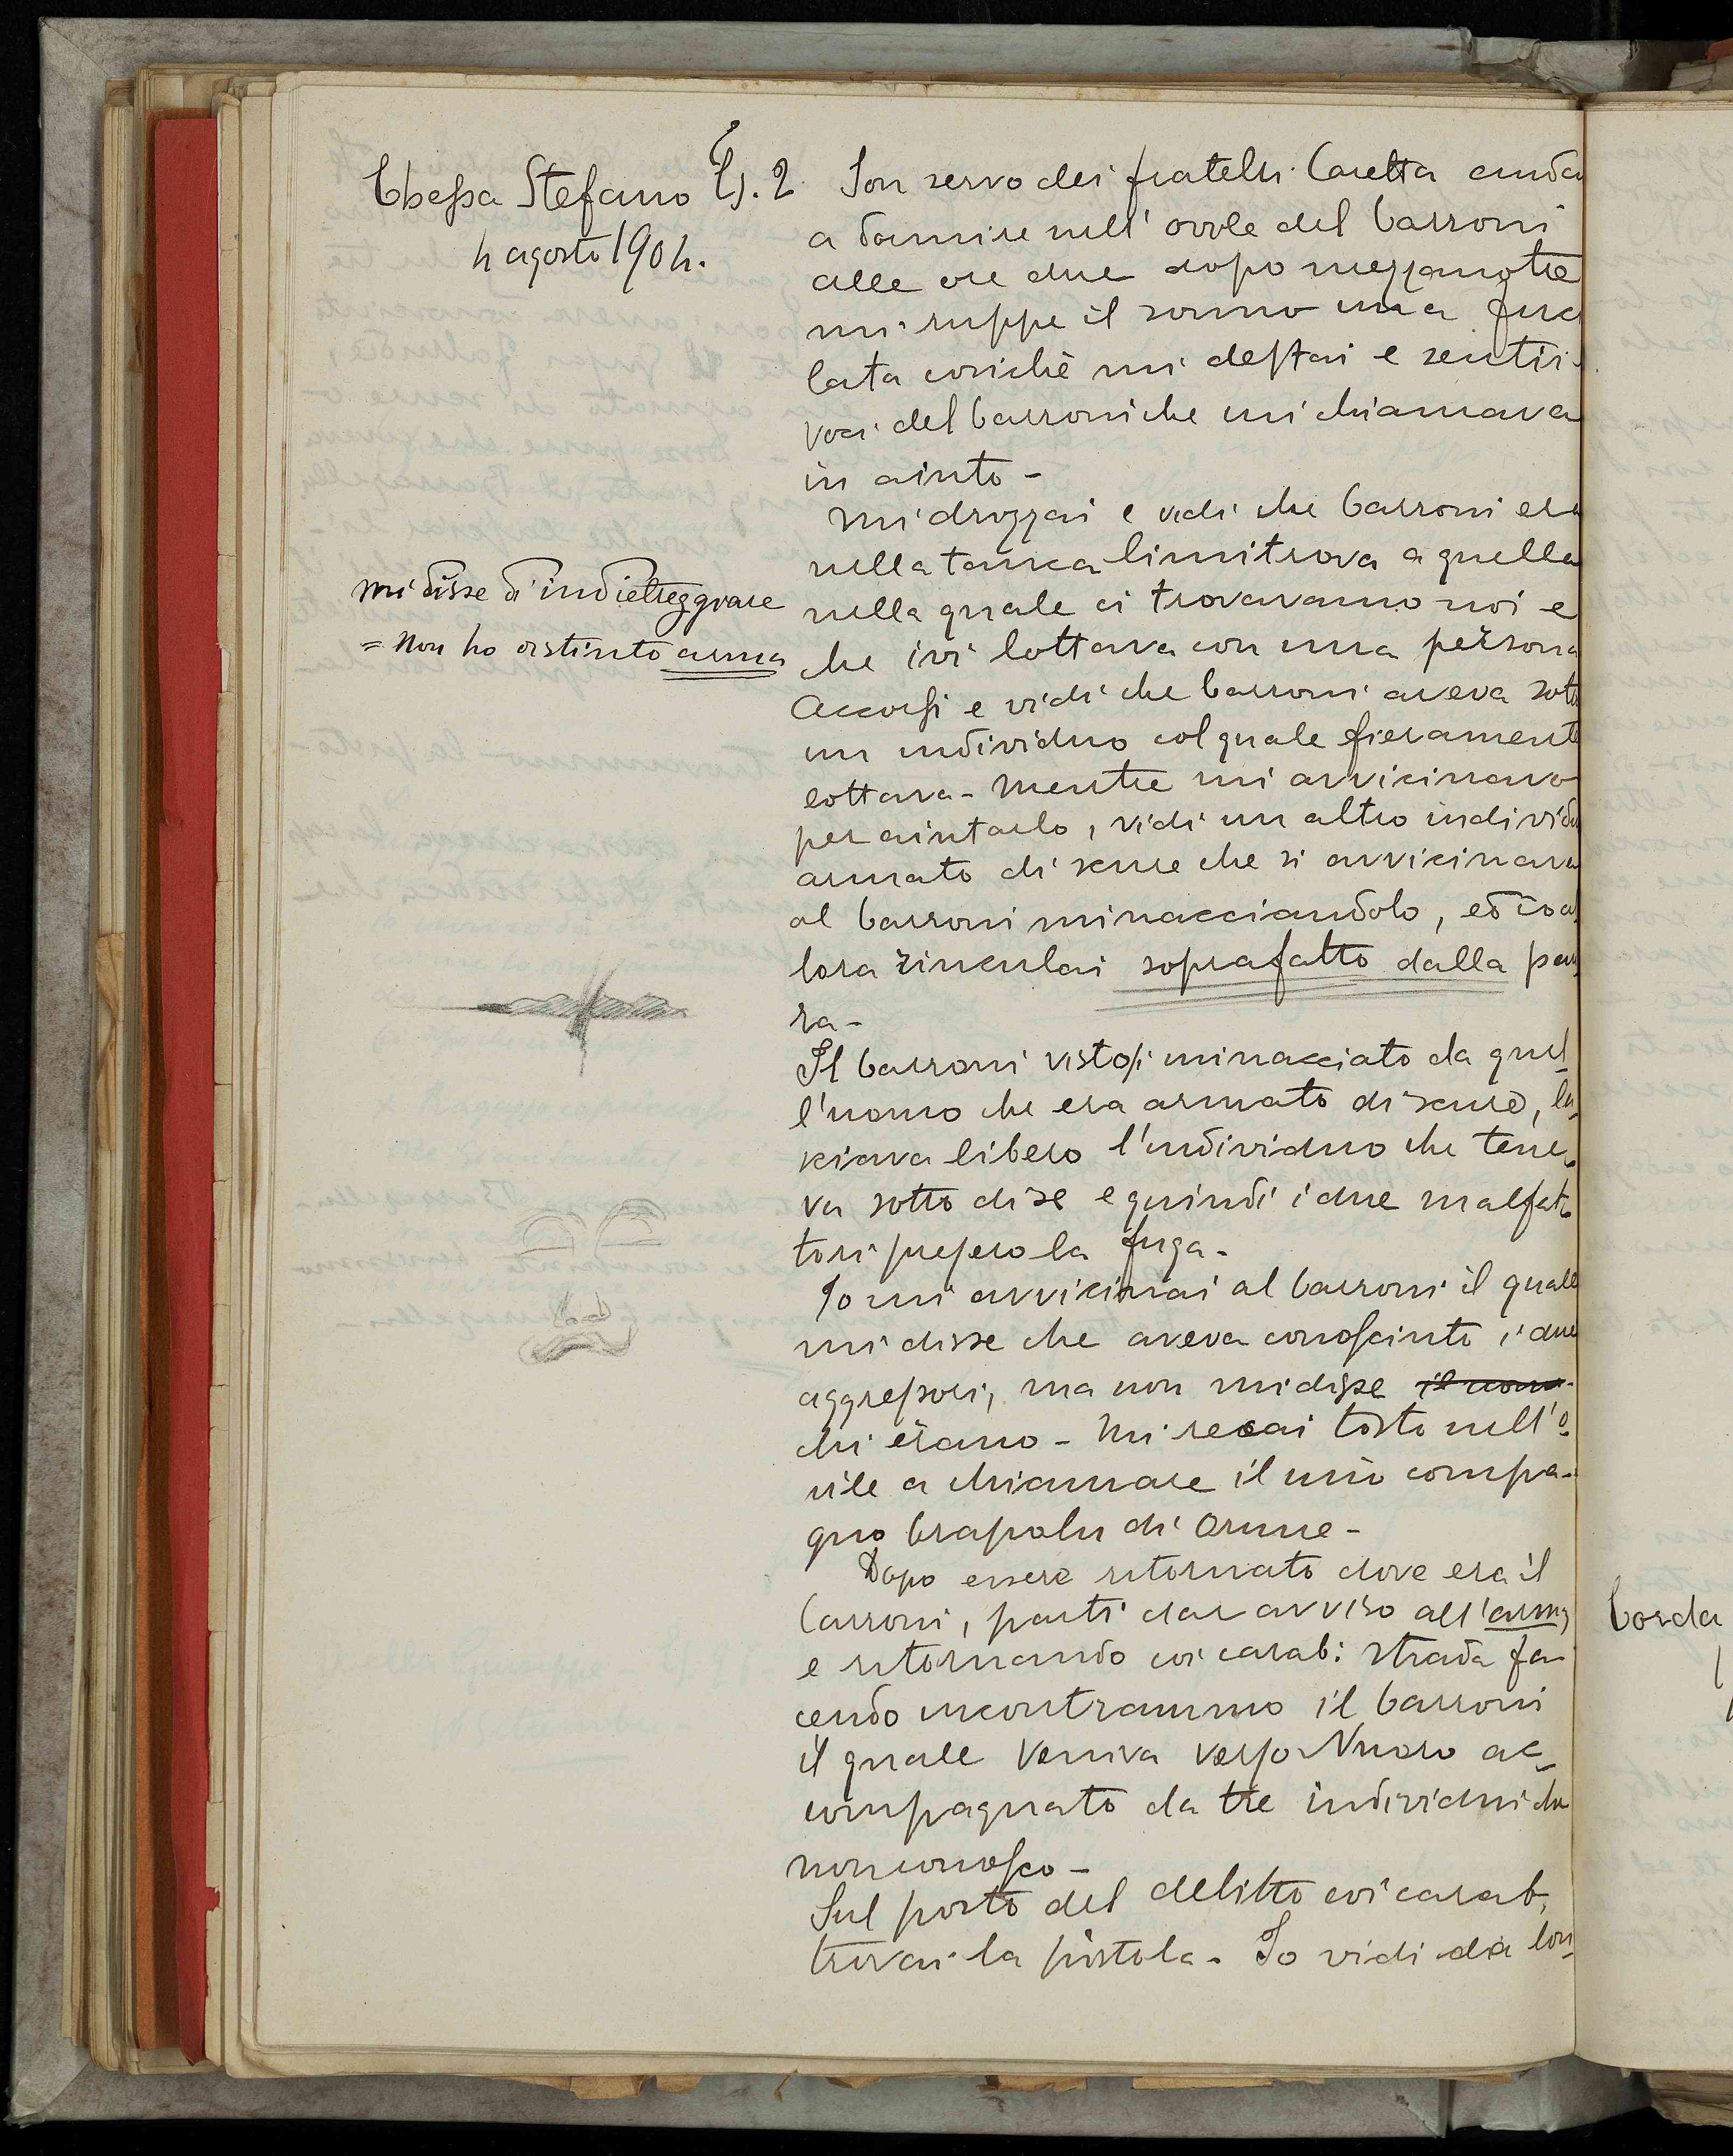 Chessa Stefano C. 2
4 agosto 1904.
mi disse di indietreggiare
= Non ho distinto arma
Son servo dei fratelli Caretta andai
a dormire nell'ovile del Carroni
alle ore due dopo mezzanotte
mi ruppe il sonno una fuci
lata cosichè mi destai e sentii
voci del Carroni che mi chiamava
in aiuto -
Mi drizzai e vidi che Carroni era
nella tanca limitrova a quella
nella quale ci trovavamo noi e
che ivi lottava con una persona
Accorsi e vidi che Carroni aveva sotto
un individuo col quale fieramente
lottava - Mentre mi avvicinavo
per aiutarlo, vidi un altro individuo
armato di scure che si avvicinava
al Carroni minacciandolo, ed io al
lora rinculai soprafatto dalla pau
ra -
Il Carroni vistosi minacciato da quel
l'uomo che era armato di scure, la
sciava libero l'individuo che tene
va sotto di se e quindi i due malfat
tori presero la fuga -
Io mi avvicinai al Carroni il quale
mi disse che aveva conosciuto i due
aggressori, ma non mi disse il nome
chi erano - Mi recai tosto nell'o
vile a chiamare il mio compa-
gno Crapolu di Orune -
Dopo essere ritornato dove era il
Carroni, parti dar avviso all'arma,
e ritornando coi carab: strada fa
cendo incontrammo il Carroni
il quale veniva verso Nuoro ac
compagnato da tre individui che
non conosco -
Sul posto del delitto coi carab,
trovai la pistola - Io vidi da lon
Corda